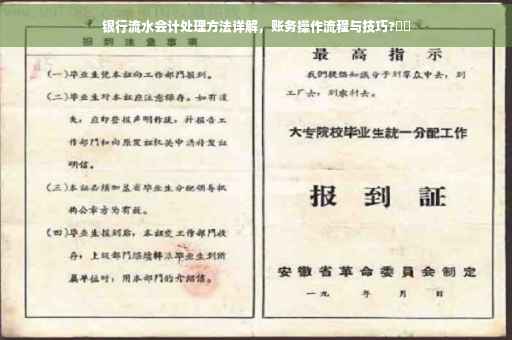 银行流水会计处理方法详解，账务操作流程与技巧?
报到注意事项
(一)毕业生凭本証向工作部門报到。
(二)毕业生对本証应注意保存。如有遗
失，应即登报声明作废，并报告工
作部門和向原发証机关申請补发証
明信。
(三)本証必须加盖省毕业生分配领导机
构公章方为有效。
(四)毕业生报到后，本証交工作部門收
存；上级部門
属单位时，用本部門的介绍信。
最高指示
我們提倡知識分子到羣众中去，到
工厂去，到农村去。
大专院校毕业生統一分配工作
报到証
安徽省革命委員会制定
一九 年 月 日